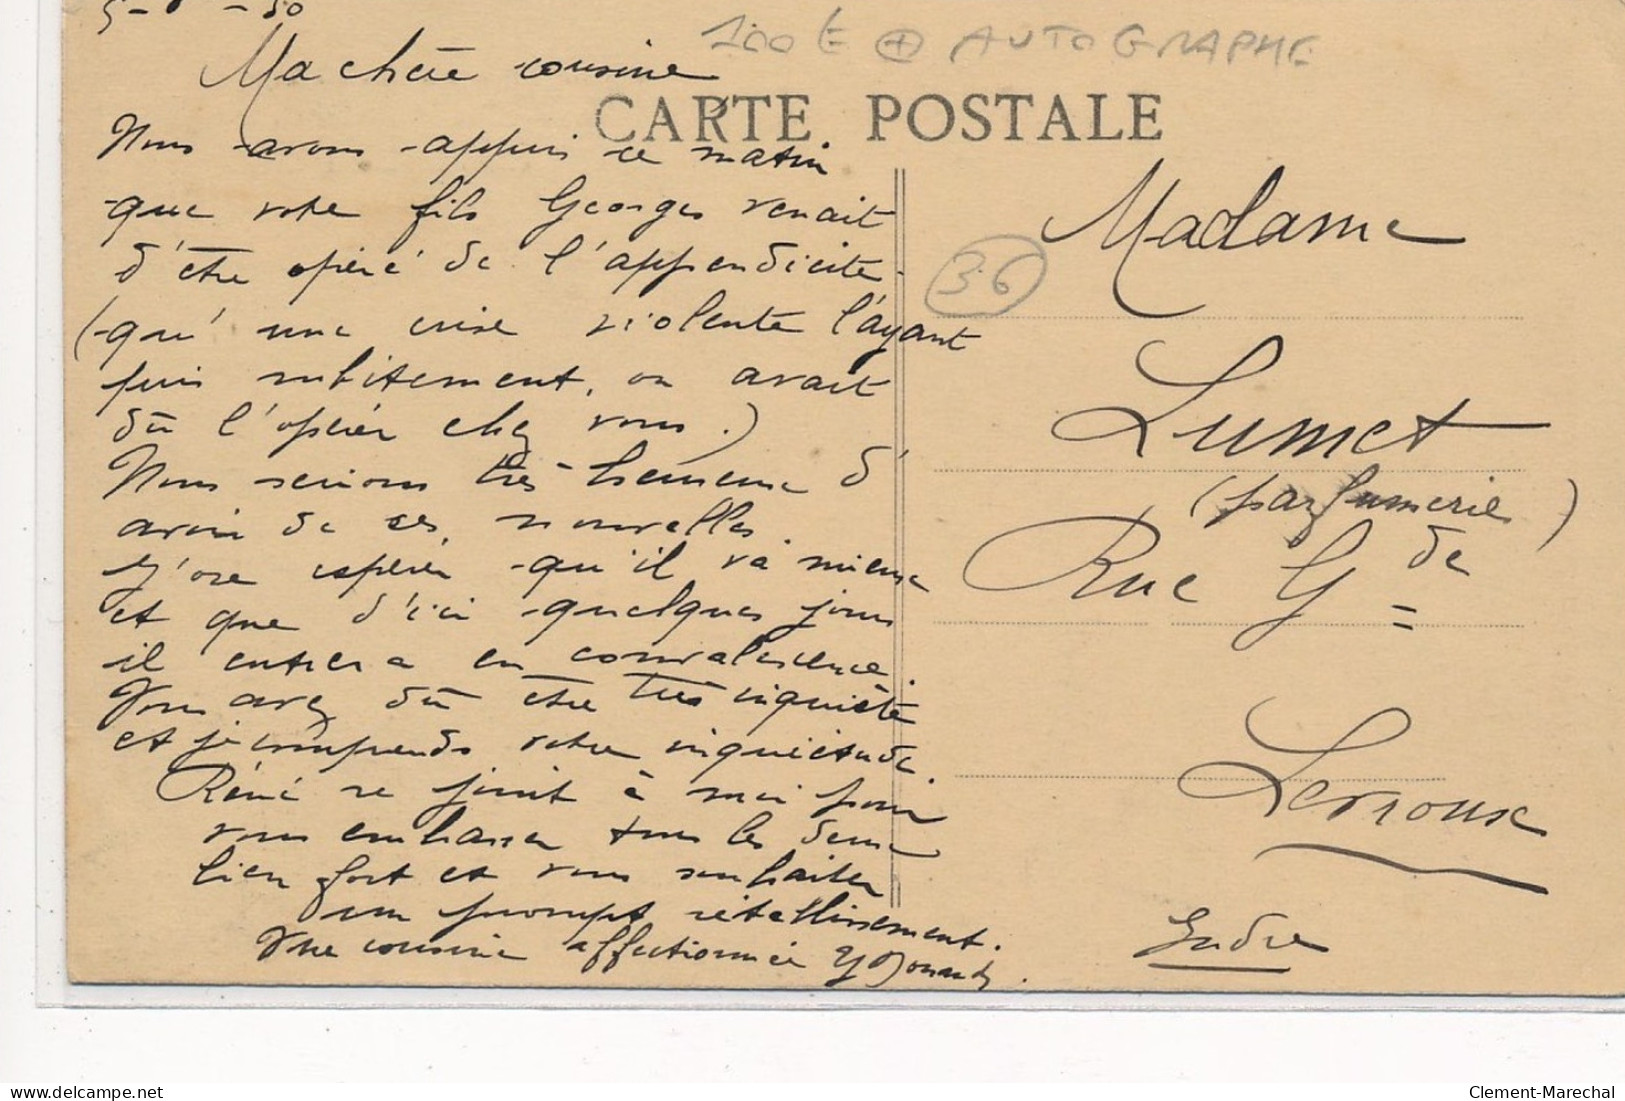 100 E + AUTOGRAPHE
Ma chère cousine
CARTE POSTALE
Nous avons appris ce matin
que votre fils Georges venait
d'être opéré de l'appendicite
(qu'une crise violente l'ayant
pris subitement, on avait
dû l'opérer chez vous.)
Nous serions très heureux d'
avoir de ses nouvelles.
J'ose espérer qu'il va mieux
et que d'ici quelques jours
il entrera en convalescence.
Vous avez dû être très inquiète
et je comprends votre inquiétude.
Réné se joint à moi pour
vous embrasser tous les deux
bien fort et vous souhaiter
un prompt rétablissement.
Vre cousine affectionnée
36
Madame
Lumet
(parfumerie)
Rue Gde
Levroux
Indre
delcampe.net
Clement-Marechal